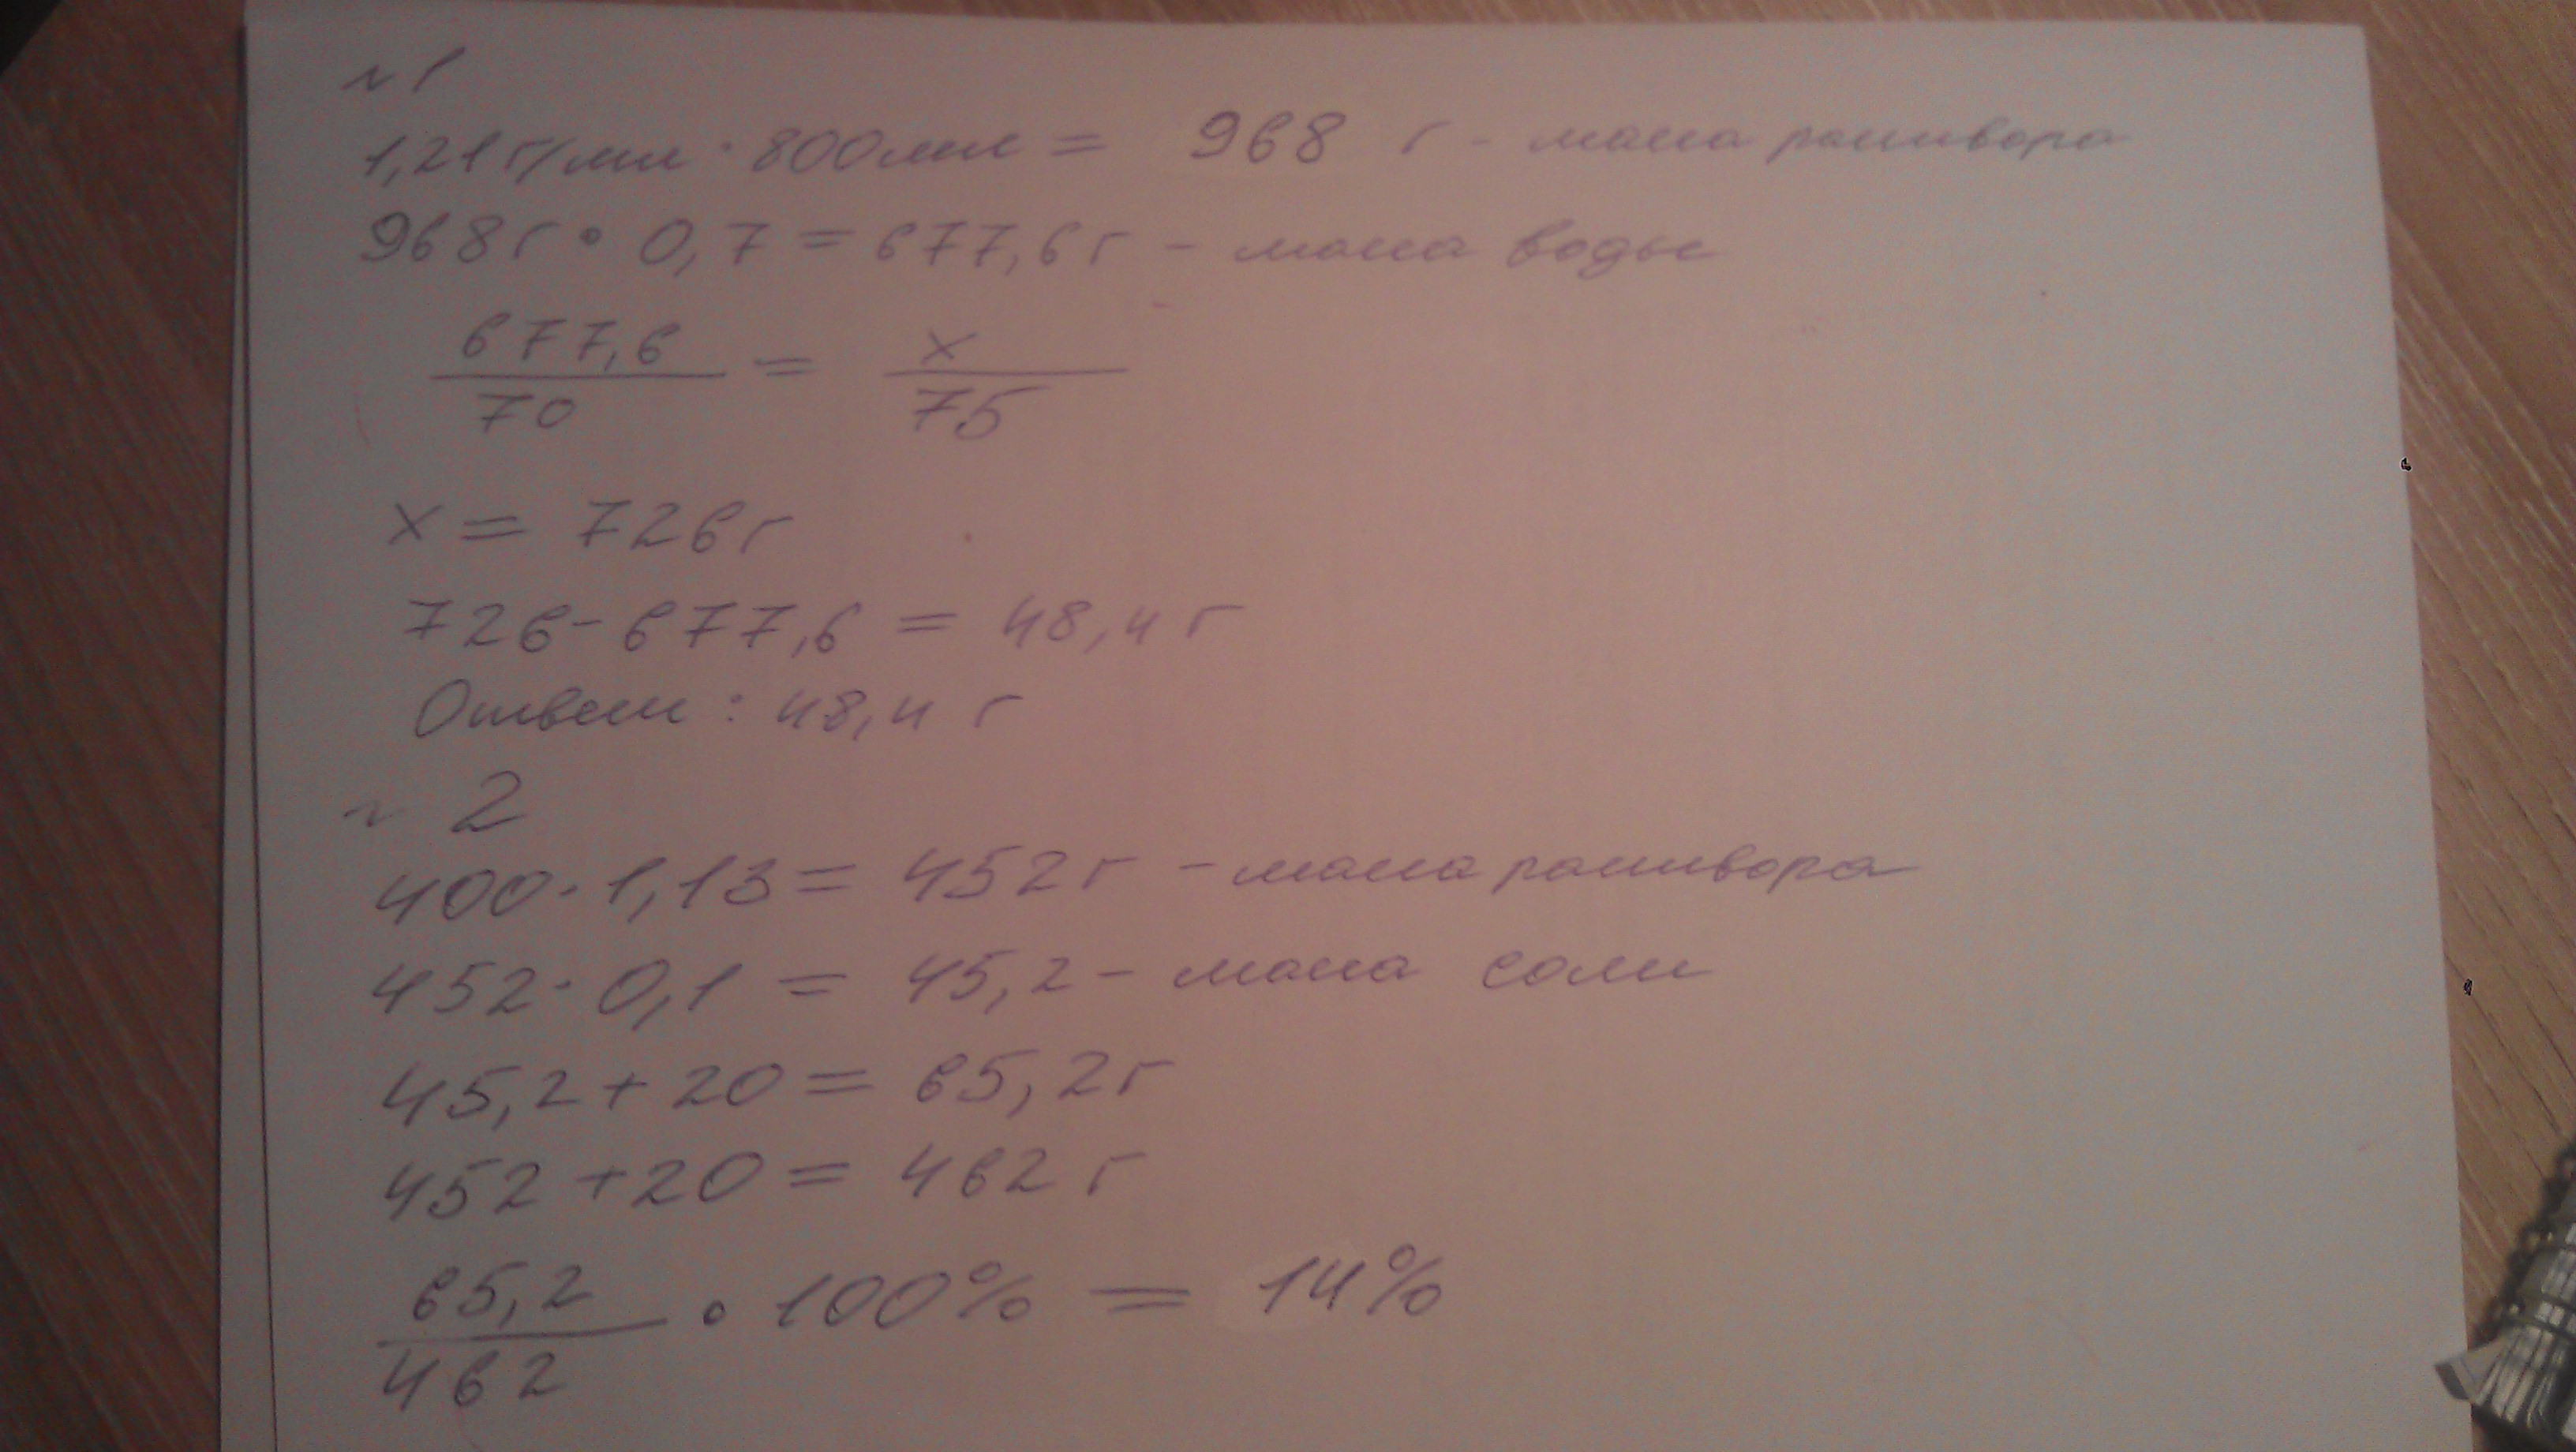 №1
1,21 г/мл · 800 мл = 968 г - масса раствора
968 г · 0,7 = 677,6 г - масса воды
677,6 / 70 = x / 75
x = 726 г
726 - 677,6 = 48,4 г
Ответ: 48,4 г
№ 2
400 · 1,13 = 452 г - масса раствора
452 · 0,1 = 45,2 - масса соли
45,2 + 20 = 65,2 г
452 + 20 = 462 г
65,2 / 462 · 100% = 14%